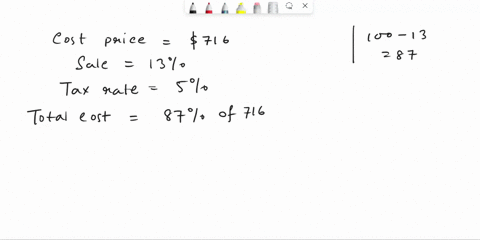 Cost price = $716
Sale = 13%
Tax rate = 5%
Total cost = 87% of 716
100 - 13
= 87